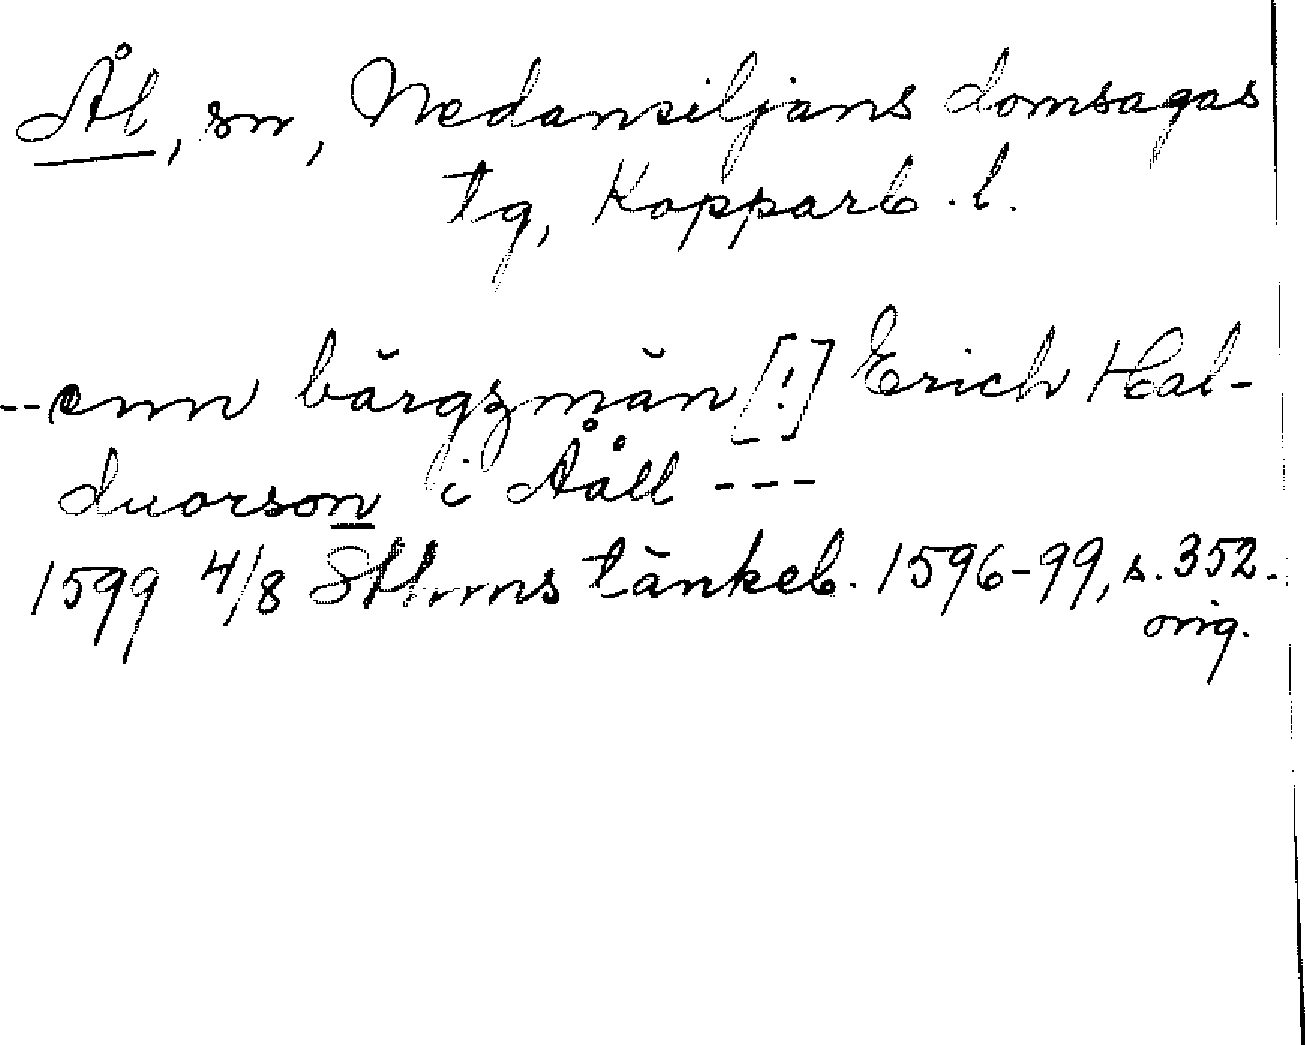 Ål, sn, Nedansiljans domsagas
tg, Kopparb. l.
--enn bärgzmän [!] Erich Hal-
duorson i Åååll ---
1599 4/8 Sthms tänkeb. 1596-99, s. 352.
orig.